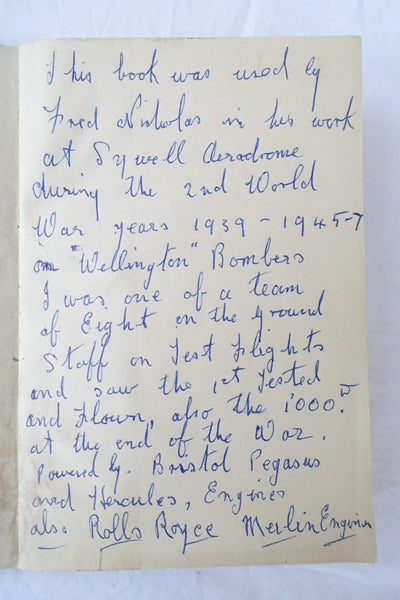 This book was used by
Fred Nicholas in his work
at Sywell Aerodrome
during the 2nd World
War years 1939 - 1945-7
on "Wellington" Bombers
I was one of a team
of Eight on the ground
Staff on Test Flights
and saw the 1st Tested
and Flown, also the 1000th
at the end of the War.
Powered by. Bristol Pegasus
and Hercules, Engines
also Rolls Royce Merlin Engines